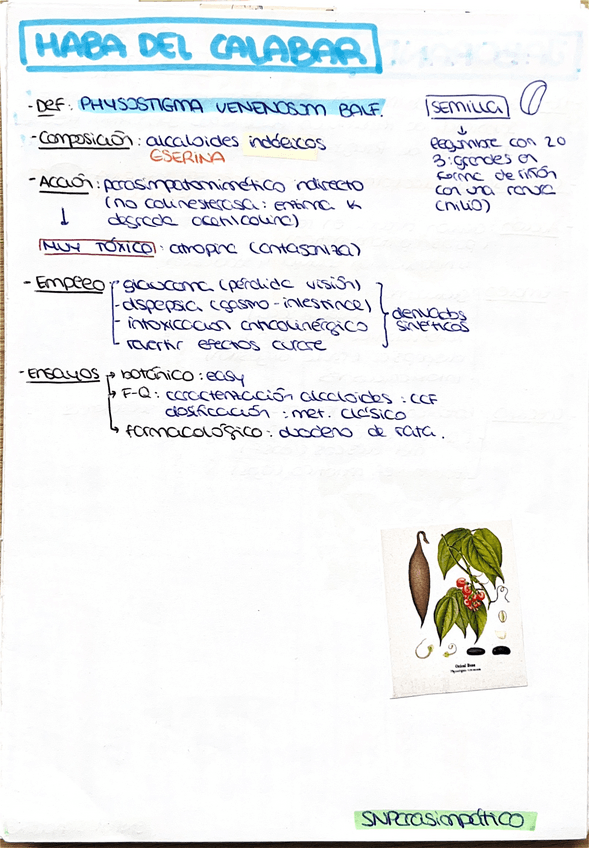 HABA DEL CALABAR
- Def: PHYSOSTIGMA VENENOSUM BALF.
- Composición: alcaloides indólicos
ESERINA
- Acción: parasimpatomimético indirecto
(no colinesterasa: enzima k
degrada acetilcolina)
MUY TÓXICO: atropina (antagoniza)
- Empleo: - glaucoma (pérdida visión)
- dispepsia (gastro-intestinal)
- intoxicacion anticolinérgico
- revertir efectos curare
derivados
sintéticos
- Ensayos → botánico: easy
→ F-Q: caracterización alcaloides: CCF
dosificación: met. clásico
→ farmacológico: duodeno de rata.
SEMILLA
legumbre con 2 o
3: grandes en
forma de riñón
con una ranura
(hilio)
Calabar Bean
SNParasimpático